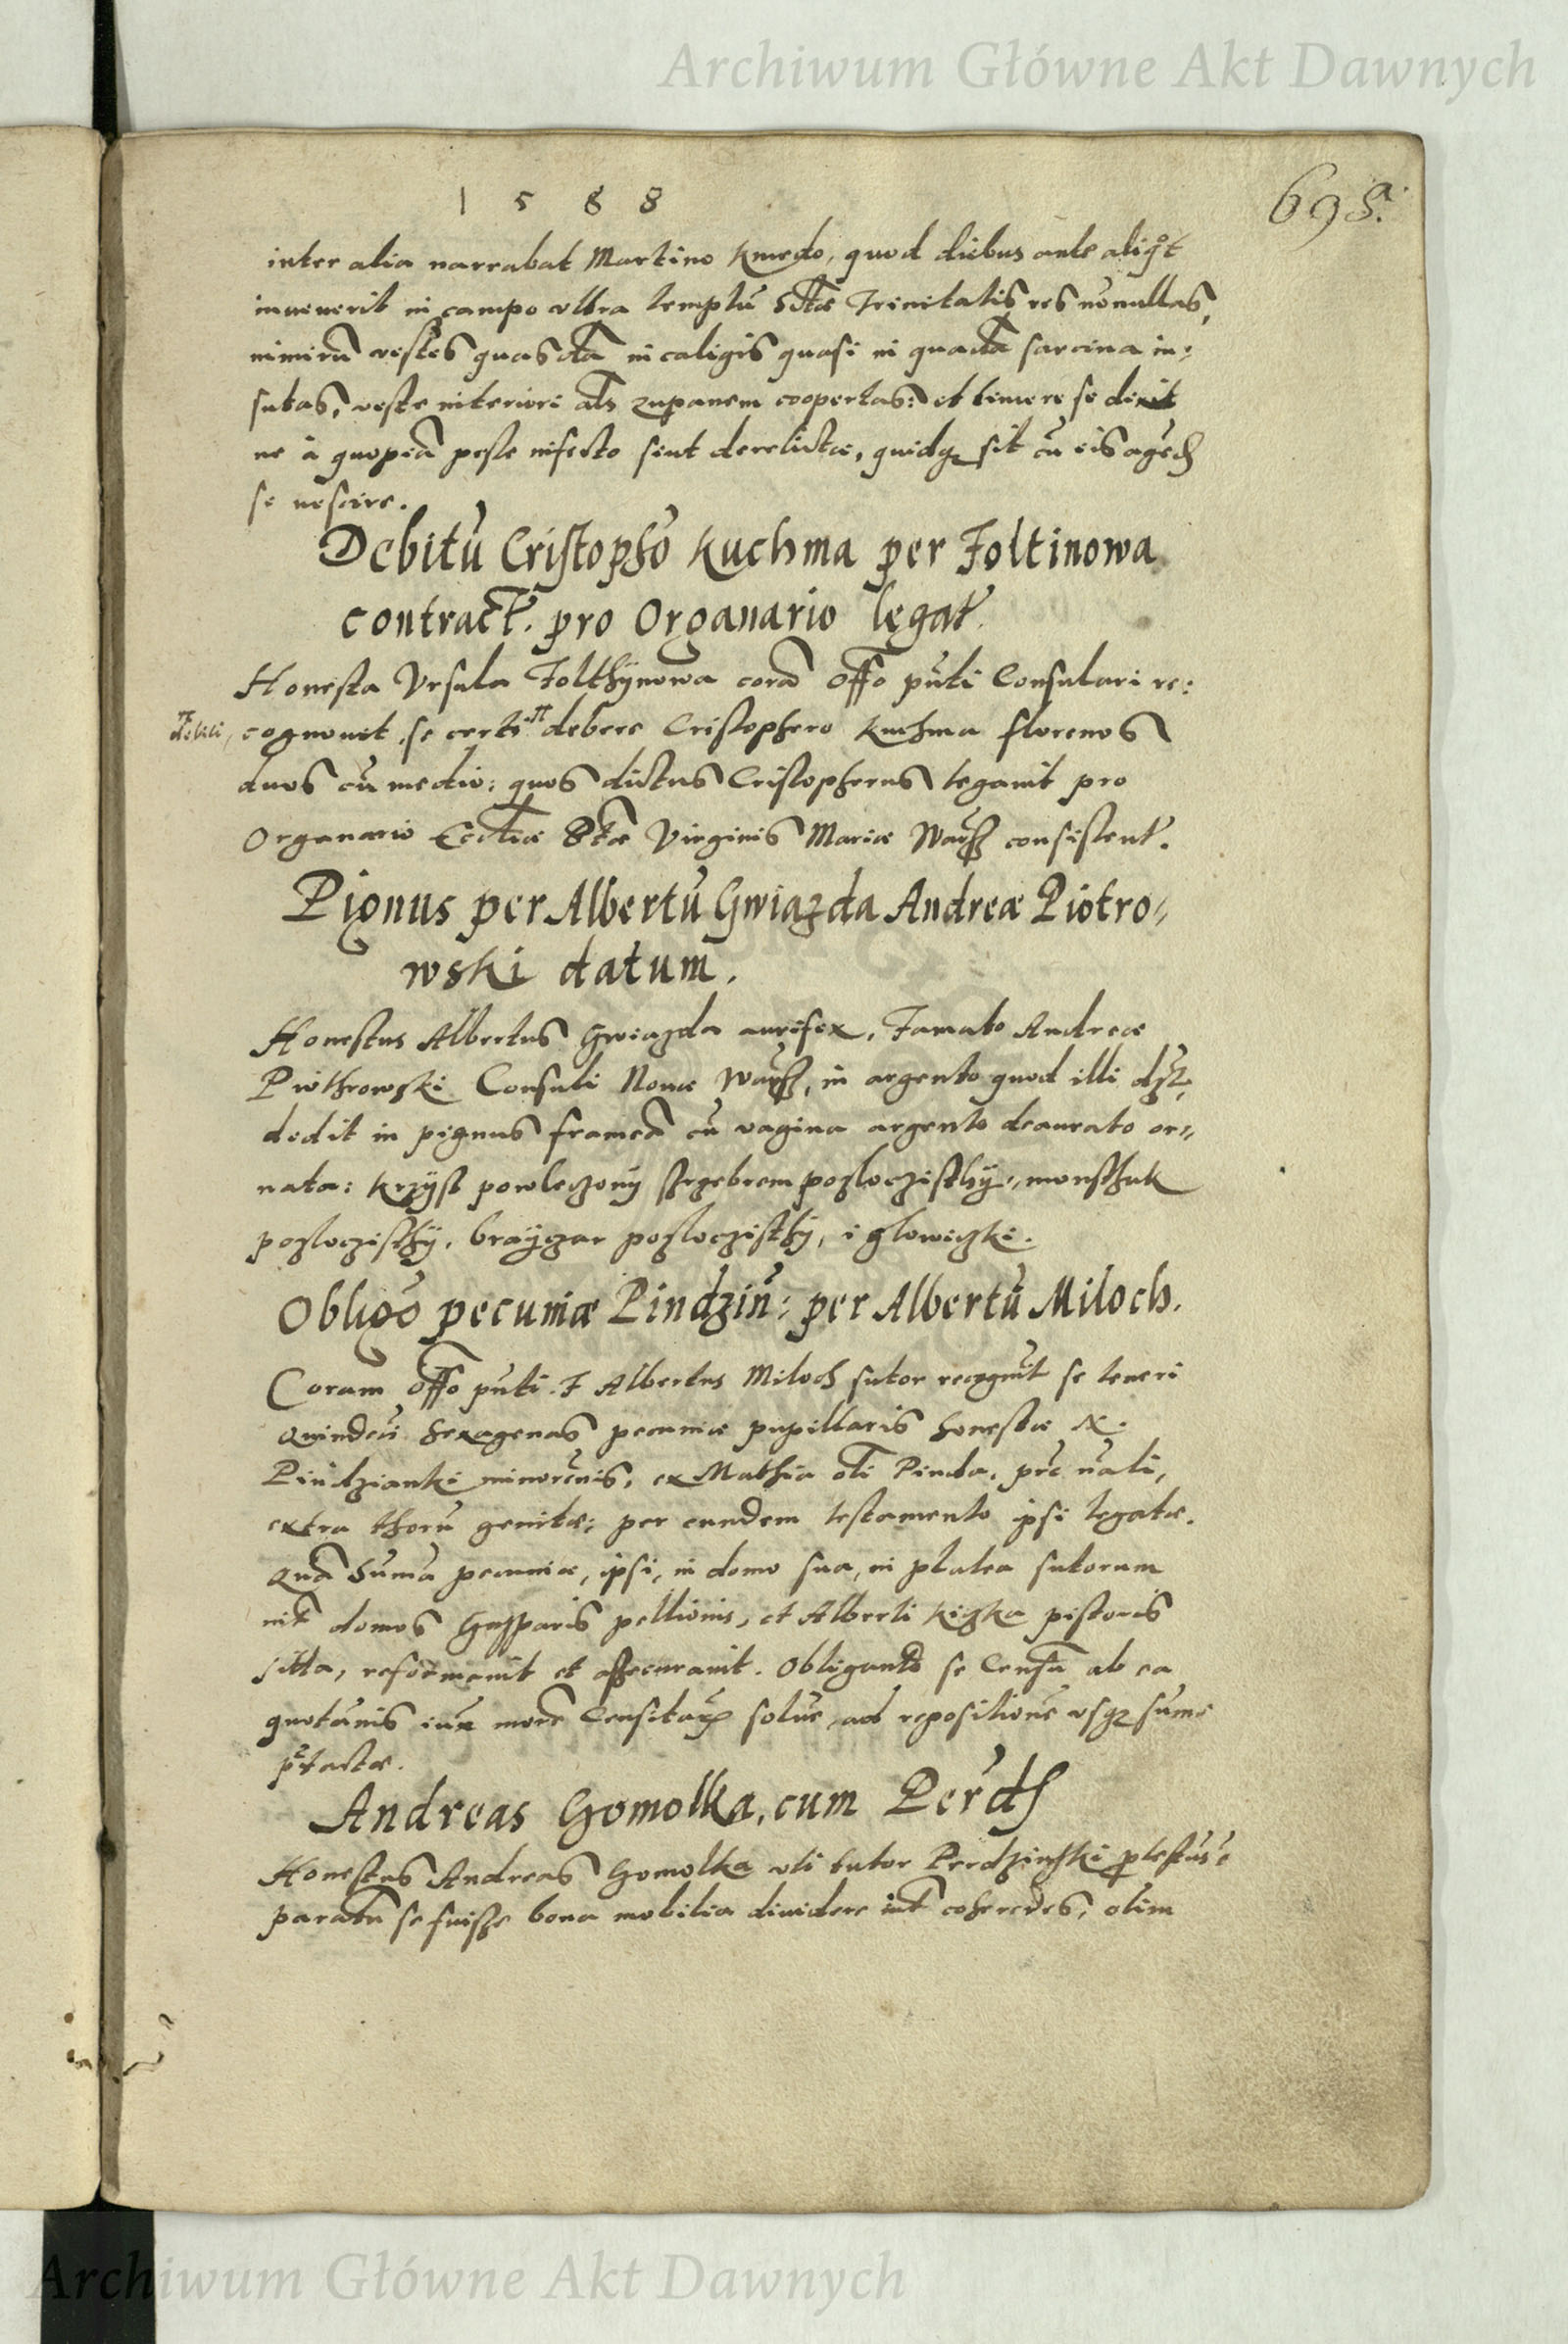 Archiwum Główne Akt Dawnych
1588
698.
inter alia narrabat Martino Kmedo, quod diebus ante aliqͦt
inuenerit in campo vltra templū Sctæ Trinitatis res nōnullas,
nimirū vestes quasdā in caligis quasi in quadā sarcina in:
sutas, veste interiori als zupanem coopertas: et timere se dixit
ne à quopiā peste infecto sint derelictæ, quidqz sit cū eis agēd
se nescire.
Debitū Cristophō Kuchma per Foltinowa
contract. pro Organario legat.
Honesta Vrsula Folthÿnowa corā offo pūti Consulari re:
debiti, cognouit, se certi debere Cristophero Kuchma florenos
duos cū medio: quos dictus Cristopherus legauit pro
Organario Ecctiæ Btæ Virginis Mariæ Warß consistent.
Pignus per Albertū Gwiazda Andreæ Piotro=
wski datum.
Honestus Albertus Gwiazda aurifex, Famato Andreæ
Piothrowski Consuli Nouæ Warß, in argento quod illi dʒt,
dedit in pignus frameā cū vagina argento deaurato or=
nata: krzÿst powleczonÿ srzebrem pozloczisthÿ, monsthuk
pozloczisthÿ, braÿczar pozloczisthÿ, i glowiczki.
Obligō pecuniæ Pindziń: per Albertū Miloch.
Coram offo pūti F Albertus Miloch sutor recognuit se teneri
quindeci sexagenas pecuniæ pupillaris honestæ N.
Pindzianki minorēnis, ex Mathia oti Pinda, prē nāli,
extra thorū genitæ; per eundem testamento ipsi legatæ.
Quā Sumā pecuniæ, ipsi, in domo sua, in platea sutorum
int domos Gasparis pellionis, et Alberti Kiszka pistoris
sitta, reformauit et assecurauit. Obligando se Censū ab ea
quotānis iux morē Censitarꝝ soluē, ad repositionē vsqz sumę
prætactæ.
Andreas Gomolka, cum Perd
Honestus Andreas Gomolka vti tutor Perdzinski ꝓtestus ē
paratū se fuisse bona mobilia diuidere int coheredes, olim
Archiwum Główne Akt Dawnych